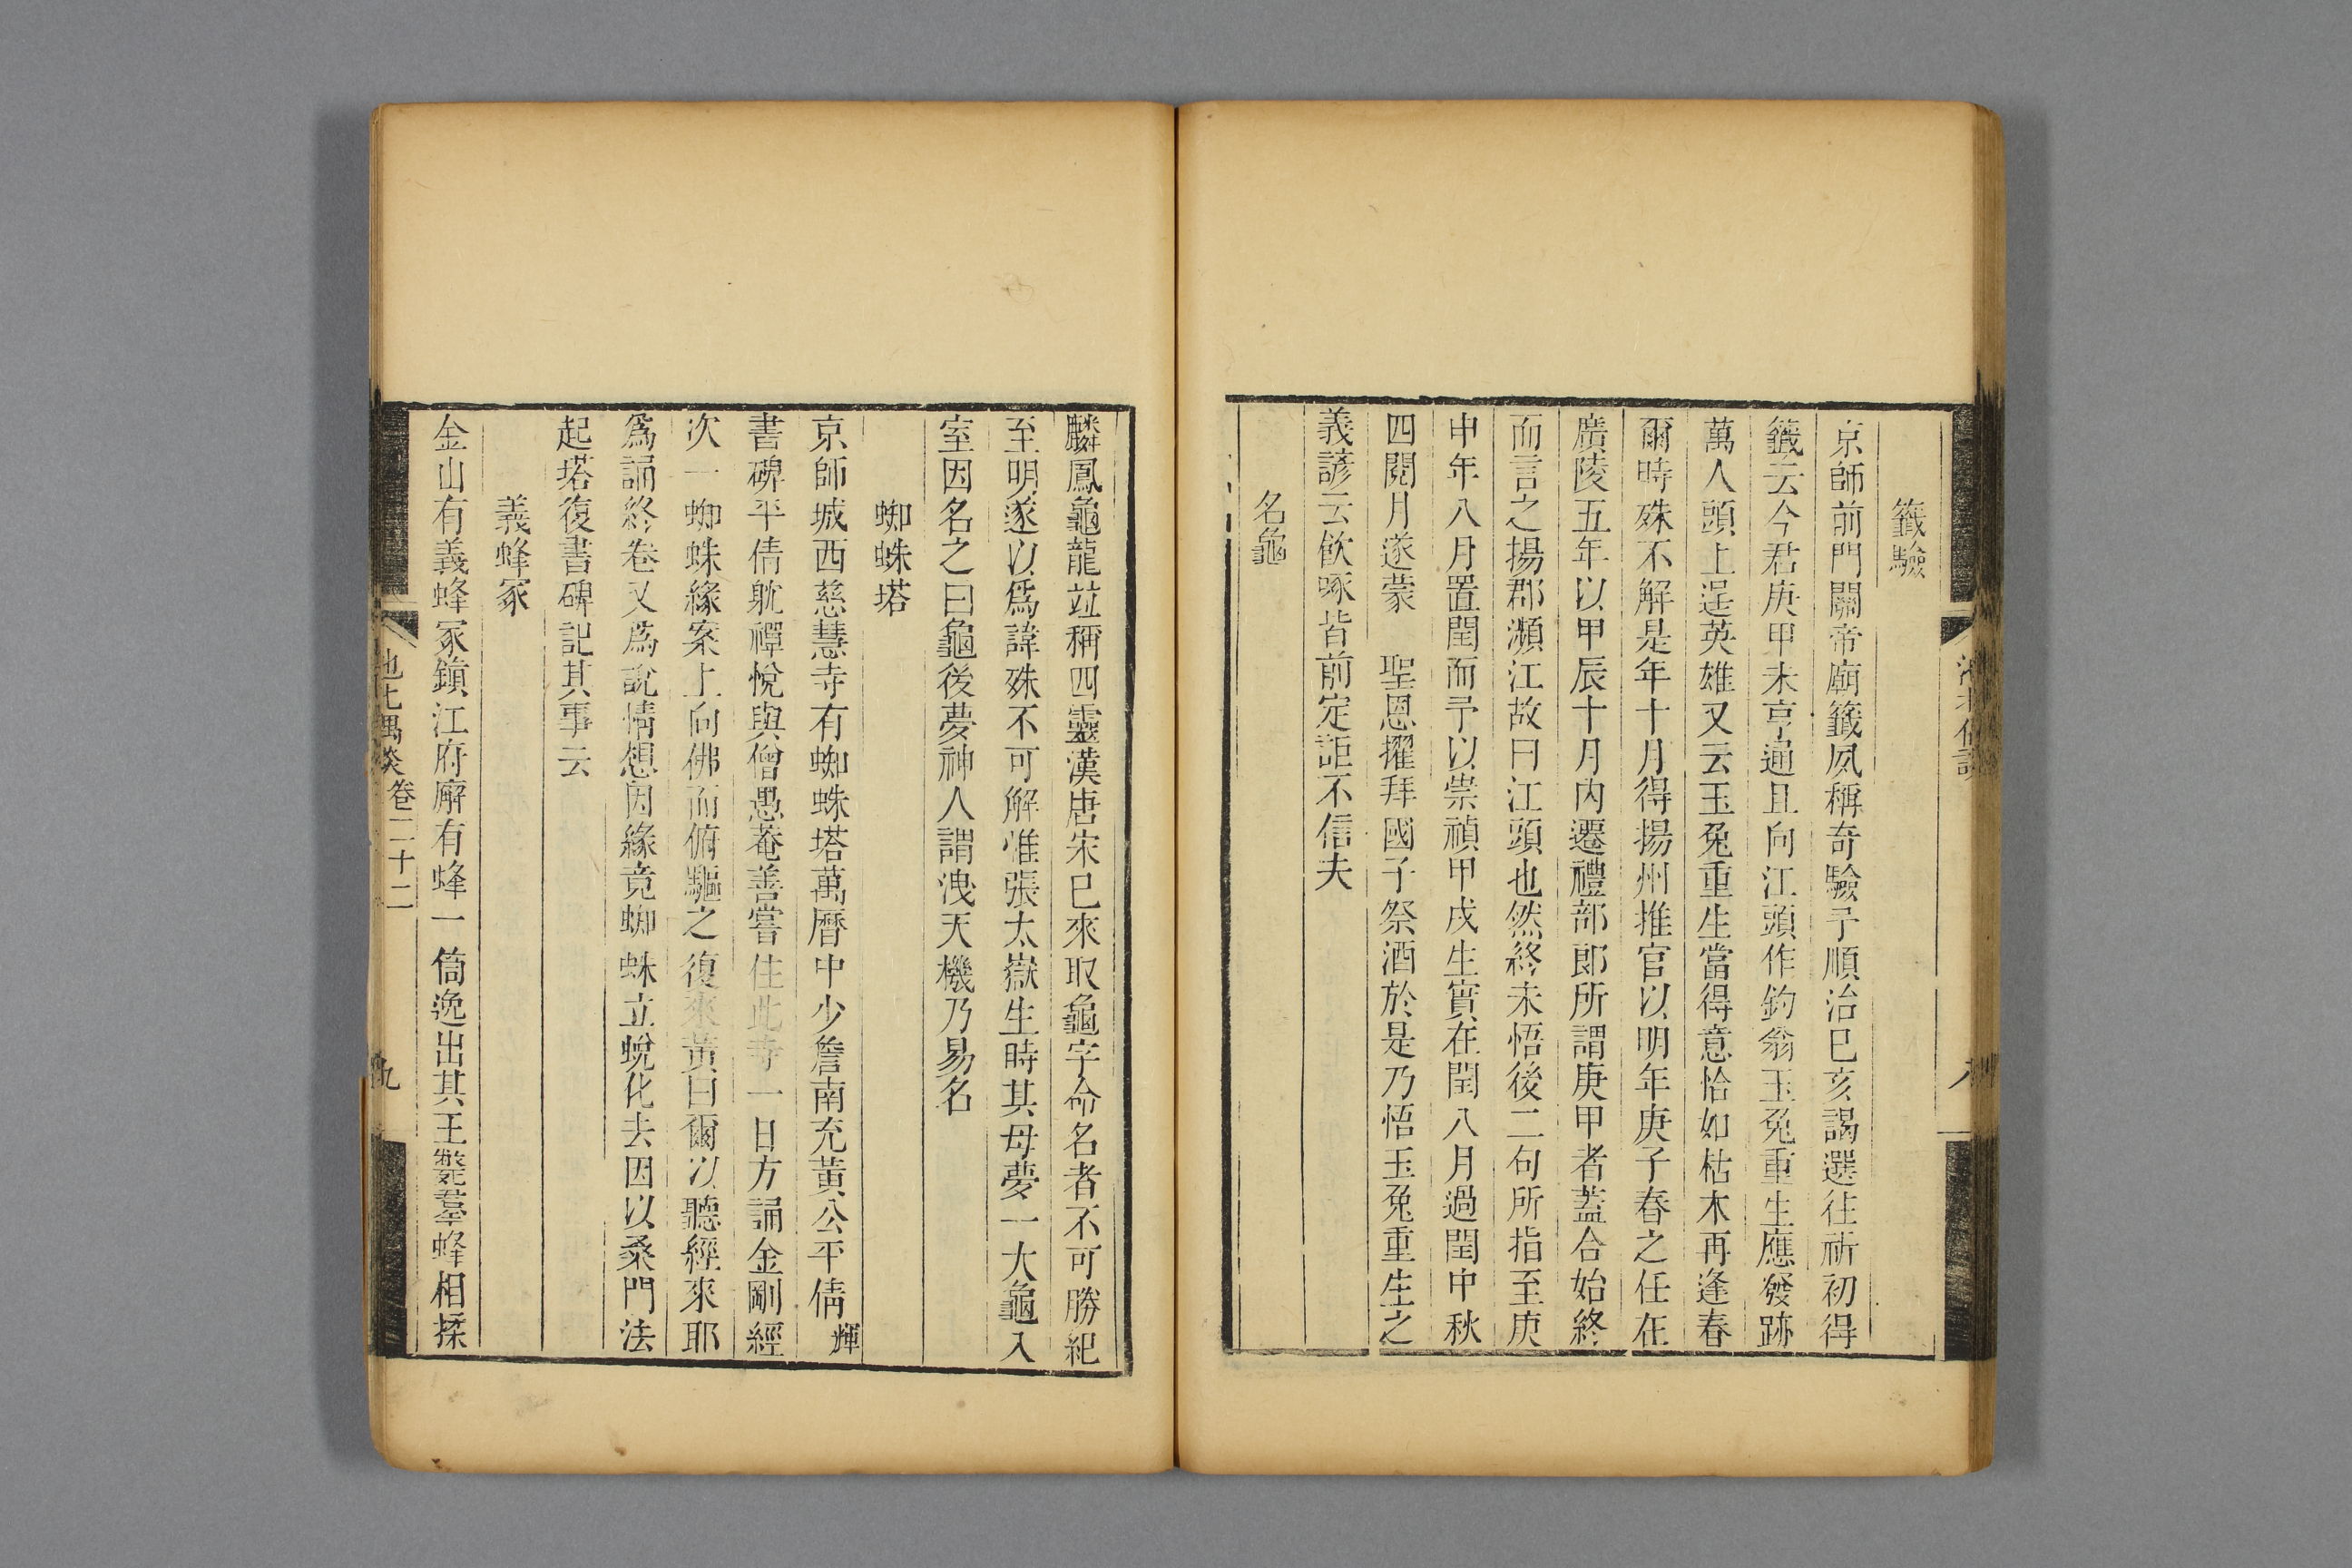 籤驗
京師前門關帝廟籤夙稱奇驗予順治巳亥謁選往祈初得
籤云今君庚甲未亨通且向江頭作釣翁玉兔重生應發跡
萬人頭上逞英雄又云玉兔重生當得意恰如枯木再逢春
爾時殊不解是年十月得揚州推官以明年庚子春之任在
廣陵五年以甲辰十月內遷禮部郎所謂庚甲者蓋合始終
而言之揚郡瀕江故曰江頭也然終未悟後二句所指至庚
申年八月置閏而予以崇禎甲戌生實在閏八月過閏中秋
四閱月遂蒙 聖恩擢拜國子祭酒於是乃悟玉兔重生之
義諺云飲啄皆前定詎不信夫
名龜
麟鳳龜龍竝稱四靈漢唐宋巳來取龜字命名者不可勝紀
至明遂以爲諱殊不可解惟張太嶽生時其母夢一大龜入
室因名之曰龜後夢神人謂洩天機乃易名
蜘蛛塔
京師城西慈慧寺有蜘蛛塔萬曆中少詹南充黃公平倩輝
書碑平倩躭禪悅與僧愚菴善嘗住此寺一日方誦金剛經
次一蜘蛛緣案上向佛而俯驅之復來黃曰爾以聽經來耶
爲誦終卷又爲說情想因緣竟蜘蛛立蛻化去因以桑門法
起塔復書碑記其事云
義蜂冢
金山有義蜂冢鎮江府廨有蜂一筩逸出其王斃羣蜂相揉
卷二十二
九